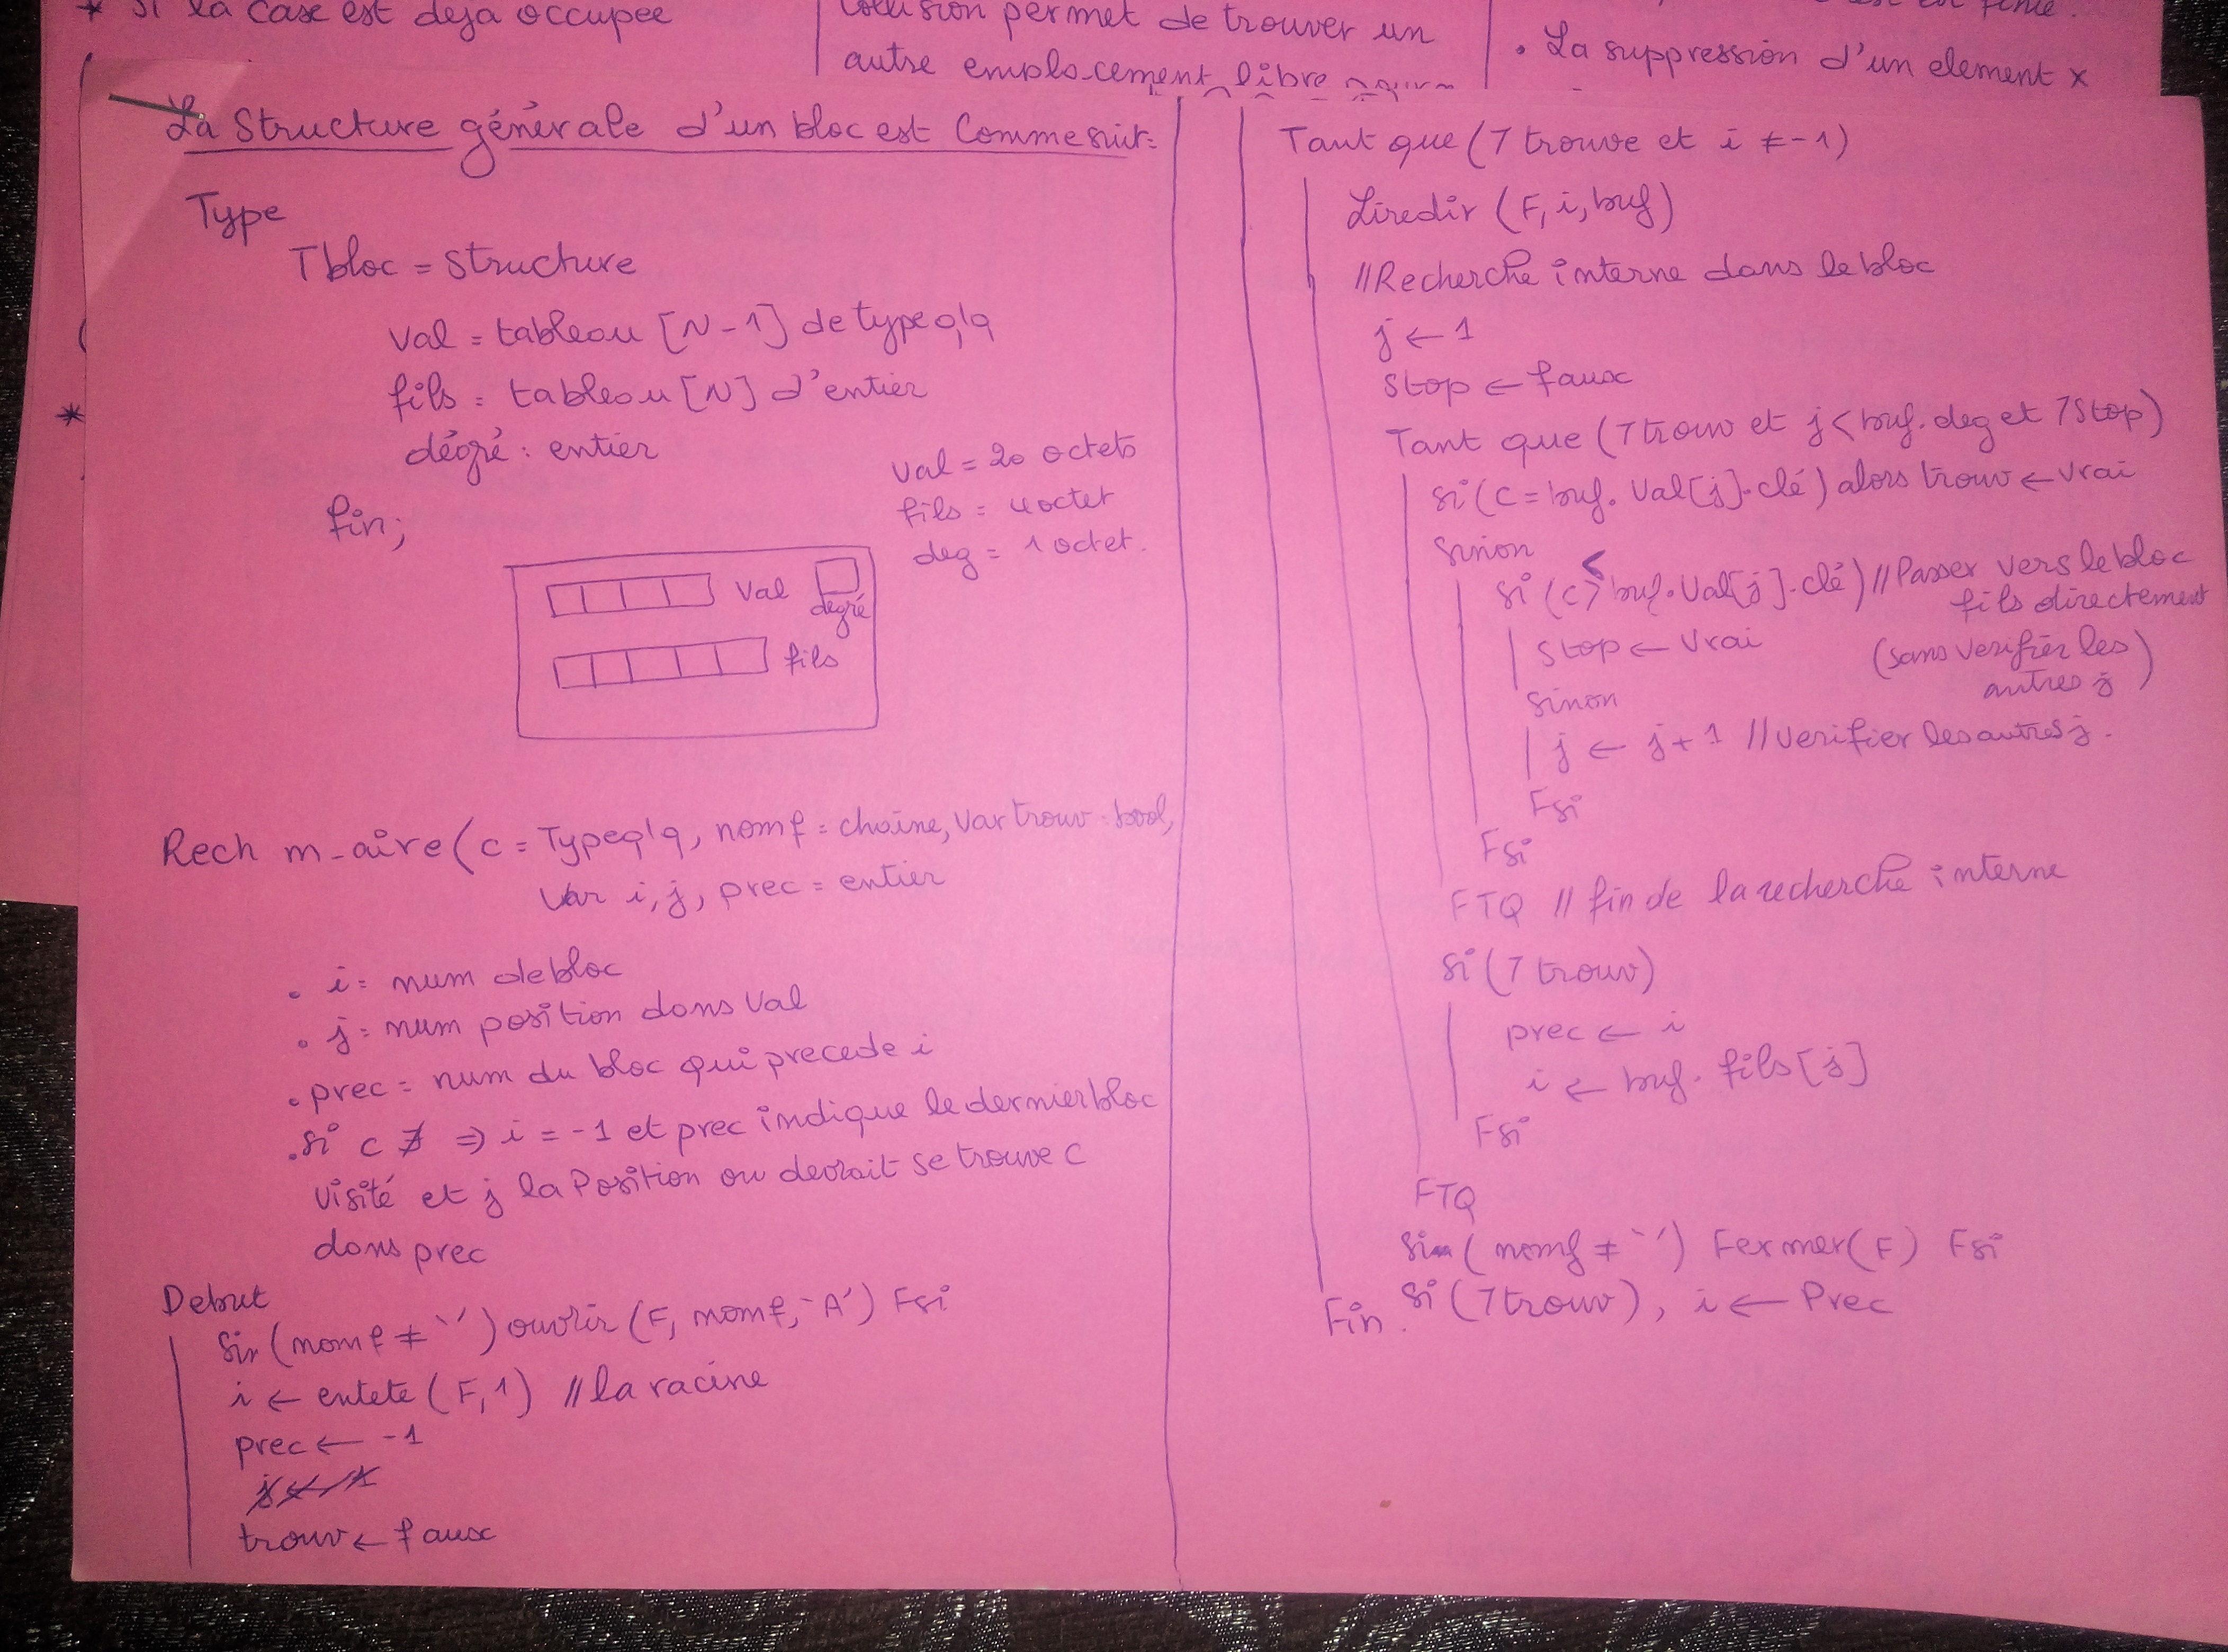 * si la case est deja occupée
collision permet de trouver un
autre emplacement libre
. La suppression d'un element x
La Structure générale d'un bloc est Comme suit:
Type
Tbloc = Structure
Val = tableau [N-1] de type q'q
fils = tableau [N] d'entier
dégré : entier
fin;
val = 20 octets
fils = 4 octet
deg = 1 octet.
Val
degré
fils
Rech m-aire (c = Type q'q, nomf = chaine, Var trouv : bool,
Var i, j, prec = entier
. i = num de bloc
. j = num position dans Val
. prec = num du bloc qui precede i
. si c ∄ ⇒ i = -1 et prec indique le dernier bloc
visité et j la Position ou devrait se trouve c
dans prec
Debut
Si (nomf ≠ `') ouvrir (F, nomf, 'A') Fsi
i ← entete (F, 1) // la racine
prec ← -1
j ← 1
trouv ← faux
Tant que (7 trouve et i ≠ -1)
Liredir (F, i, buf)
// Recherche interne dans le bloc
j ← 1
Stop ← faux
Tant que (7 trouv et j < buf. deg et 7 Stop)
si (C = buf. Val[j]. clé) alors trouv ← vrai
Sinon
<
si (c > buf. Val[j]. clé) // Passer vers le bloc
fils directement
Stop ← Vrai (sans verifier les
autres j)
Sinon
j ← j + 1 // verifier les autres j.
Fsi
Fsi
FTQ // fin de la recherche interne
si (7 trouv)
prec ← i
i ← buf. fils [j]
Fsi
FTQ
Si (nomf ≠ `') Fermer(F) Fsi
Si (7 trouv), i ← Prec
Fin.